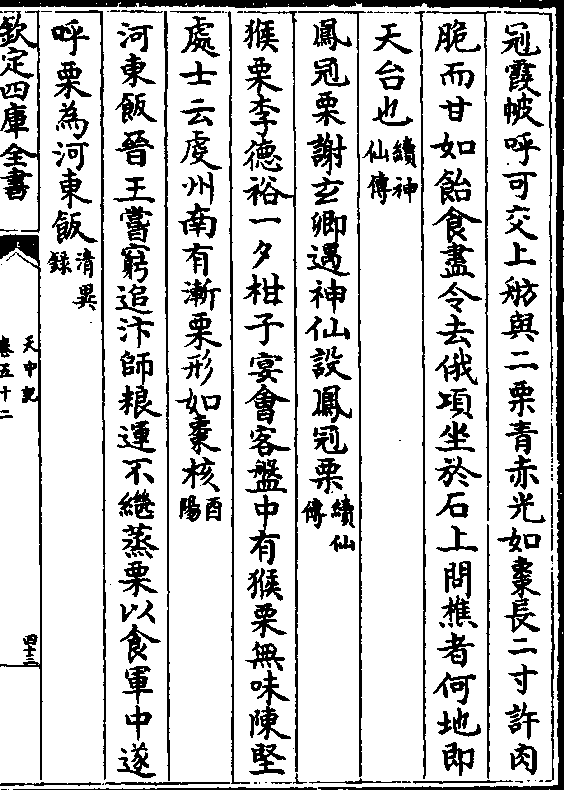 冠霞帔呼可交上舫與二栗青赤光如棗長二寸許肉
脆而甘如飴食盡令去俄項坐於石上問樵者何地即
天台也續神仙傳
鳳冠栗謝玄卿遇神仙設鳳冠栗續仙傳
猴栗李德裕一夕柑子宴會客盤中有猴栗無味陳堅
處士云虔州南有漸栗形如棗核酉陽
河東飯晉王嘗窮追汴師粮運不繼蒸栗以食軍中遂
呼栗為河東飯清異録
欽定四庫全書
天中記
卷五十二
四十三